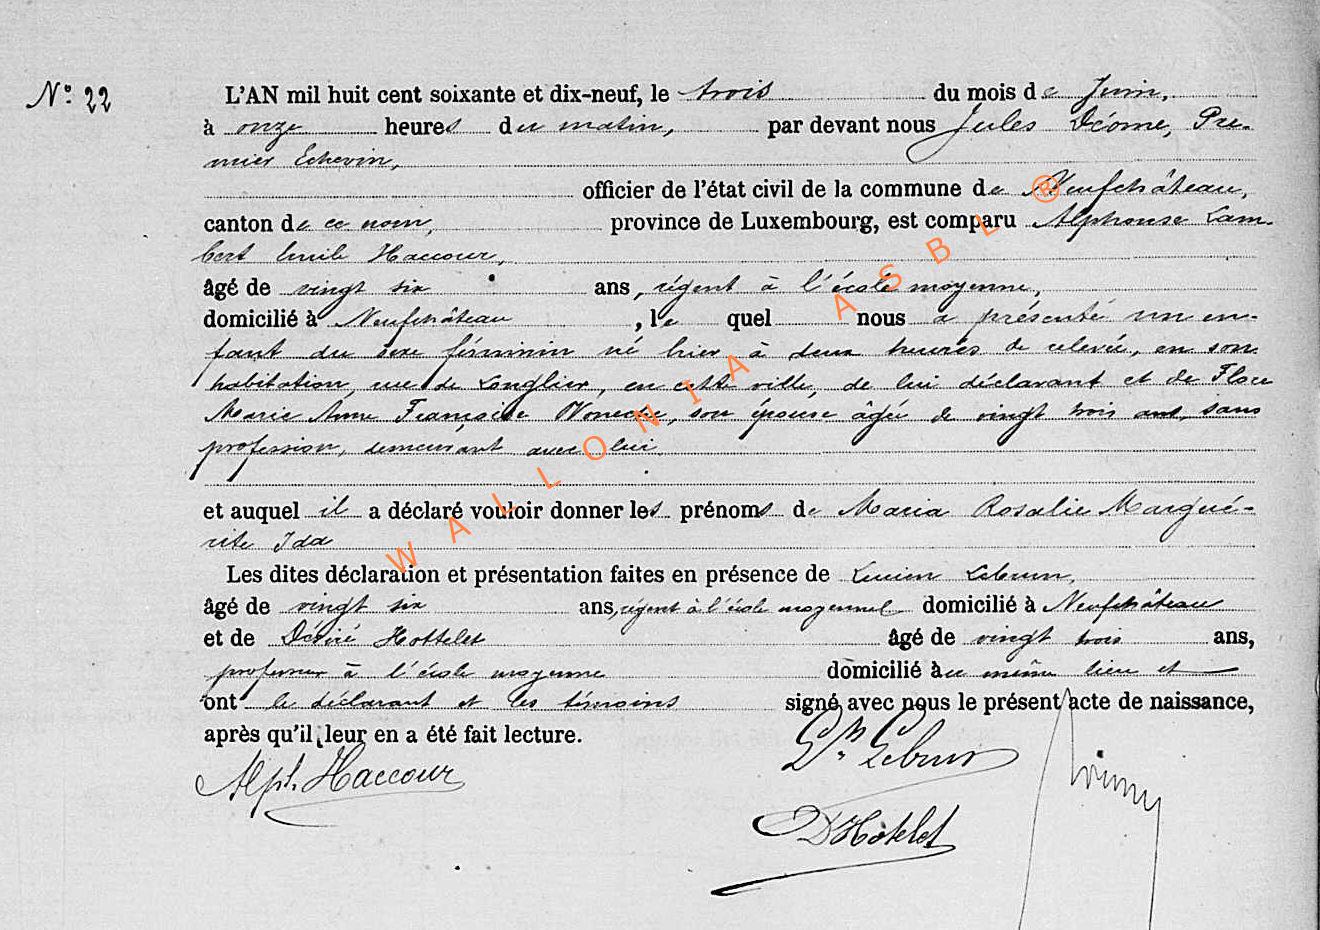 N° 22
L'AN mil huit cent soixante et dix-neuf, le trois du mois de Juin,
à onze heures du matin, par devant nous Jules Déome, Pre-
mier Echevin,
officier de l'état civil de la commune de Neufchâteau,
canton de ce nom, province de Luxembourg, est comparu Alphonse Lam-
bert Emile Haccour,
âgé de vingt six ans, régent à l'école moyenne,
domicilié à Neufchâteau, le quel nous a présenté un en-
fant du sexe féminin né hier à deux heures de relevée, en son
habitation, rue de Longlier, en cette ville, de lui déclarant et de Flore
Marie Anne Françoise, son épouse âgée de vingt trois ans, sans
profession, demeurant avec lui
et auquel il a déclaré vouloir donner les prénoms de Maria Rosalie Margué-
rite Ida
Les dites déclaration et présentation faites en présence de Lucien Lebrun,
âgé de vingt six ans, régent à l'école moyenne domicilié à Neufchâteau
et de Désiré Hottelet âgé de vingt trois ans,
professeur à l'école moyenne domicilié au même lieu et
ont le déclarant et les témoins signé avec nous le présent acte de naissance,
après qu'il leur en a été fait lecture.
Alph. Haccour
Lebrun
D Hotelet
WALLONIA ASBL ®